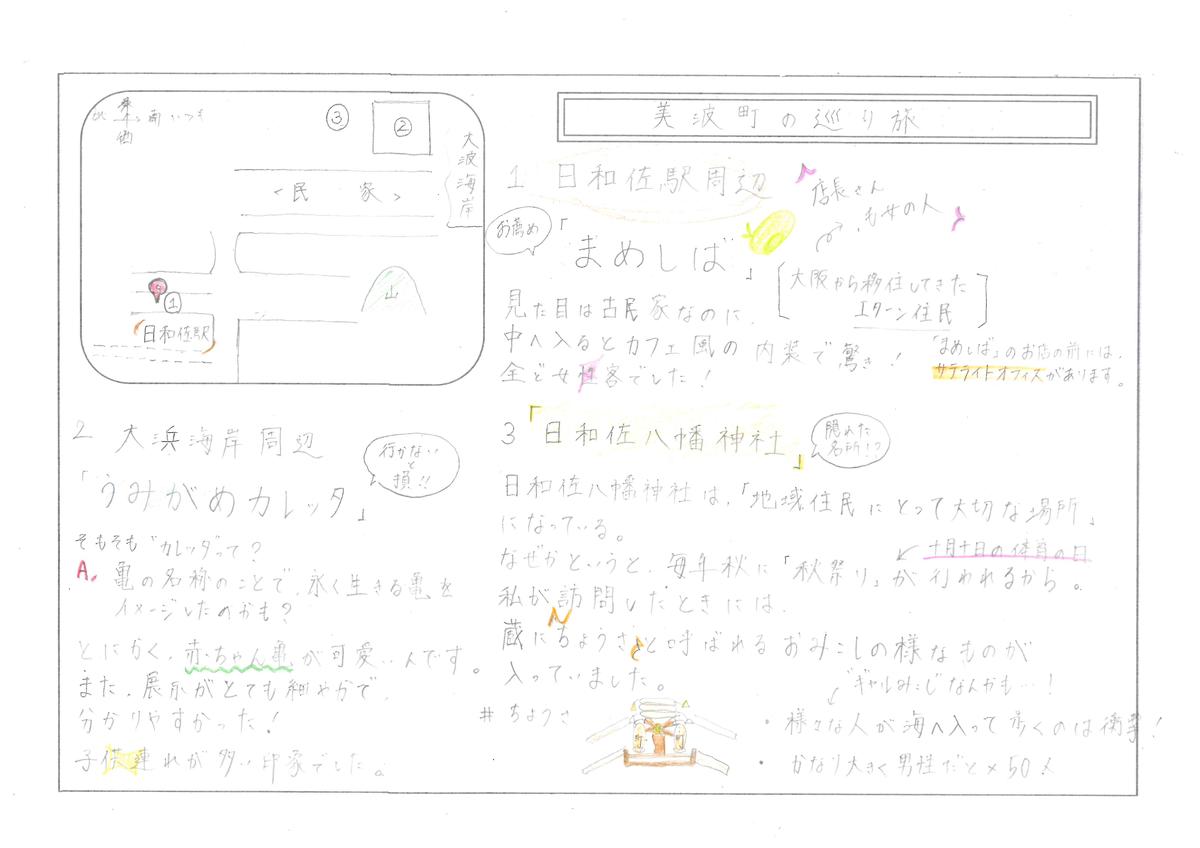 美波町の巡り旅
③
②
大波海岸
<民 家>
山
①
日和佐駅
1 日和佐駅周辺
店長さん
お薦め
「まめしば」
大阪から移住してきた
Iターン住民
見た目は古民家なのに、
中へ入るとカフェ風の内装で驚き!
全ど女性客でした!
「まめしば」のお店の前には、
サテライトオフィスがあります。
2 大浜海岸周辺
行かないと損!!
「うみがめカレッタ」
そもそも"カレッタ"って?
A. 亀の名称のことで、永く生きる亀を
イメージしたのかも?
とにかく、赤ちゃん亀が可愛いんです。
また、展示がとても細やかで、
分かりやすかった!
子供連れが多い印象でした。
3 「日和佐八幡神社」
隠れた名所!?
日和佐八幡神社は、「地域住民にとって大切な場所」
になっている。
十月十日の体育の日
なぜかというと、毎年秋に「秋祭り」が行われるから。
私が訪問したときには、
蔵にちょうさと呼ばれるおみこしの様なものが
入っていました。
ギャルみこしなんかも…!
# ちょうさ
・様々な人が海へ入って歩くのは衝撃!
・かなり大きく男性だと×50人